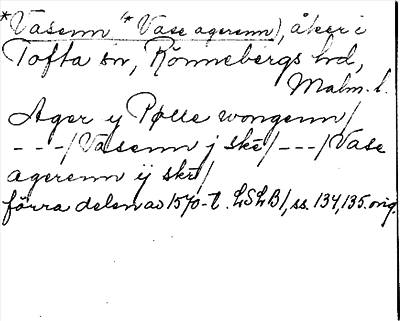 *Vasenn (*Vase agerenn), åker i
Tofta sn, Rönnebergs hd,
Malm. l.
Ager y Pølle wongenn/
---/Vasenn j skr/---/Vase
agerenn ij skr/
förra delen av 1570-t. LSLB1, ss. 134, 135. orig.